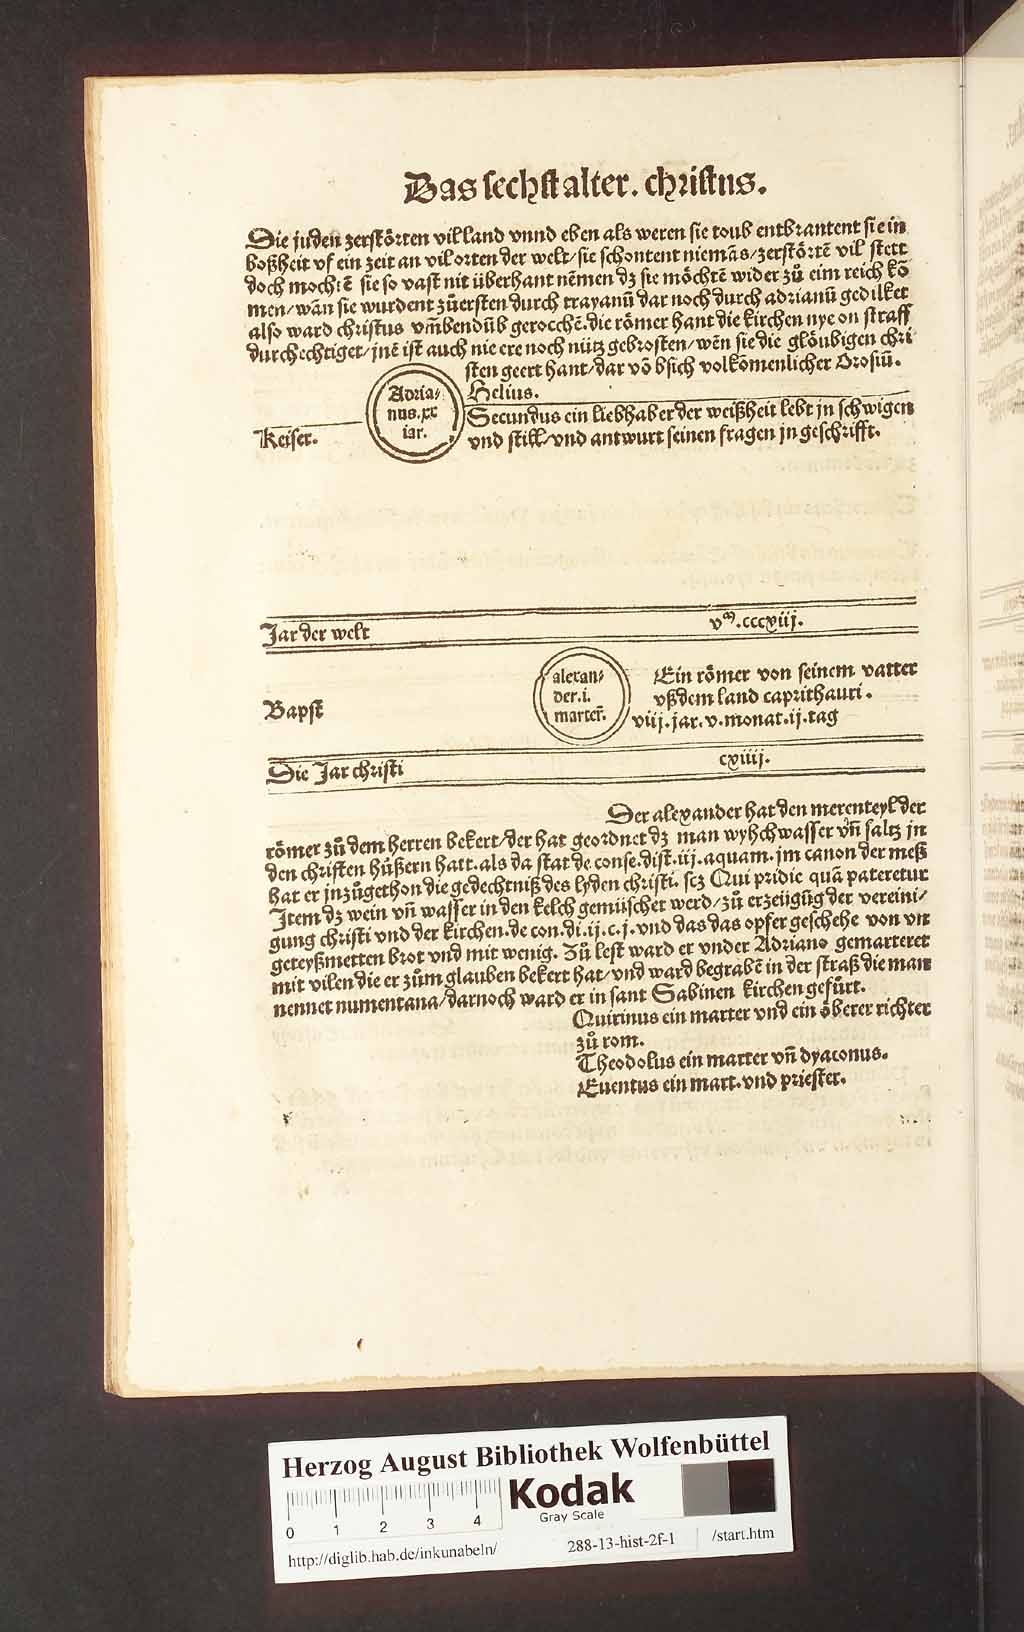 Das sechst alter. christus.
Die juden zerstörten vil land vnnd eben als weren sie toub entbrantent sie in
boßheit vf ein zeit an vil orten der welt/sie schontent niemãs/zerstörtẽ vil stett
doch mochtẽ sie so vast nit überhant nẽmen dz sie möchtẽ wider zů eim reich kõ
men/wãn sie wurdent zůersten durch trayanũ dar noch durch adrianũ gedilket
also ward christus vm̃bendůb gerocchẽ.die römer hant die kirchen nye on straff
durchechtiget/jnẽ ist auch nie ere noch nütz gebrosten/wẽn sie die glöubigen chri
sten geert hant/dar võ bsich volkõmenlicher Orosiũ.
Keiser.
Adria/
nus.xx
iar.
Helius.
Secundus ein liebhaber der weißheit lebt jn schwigen
vnd still/vnd antwurt seinen fragen jn geschrifft.
Jar der welt vᵐ.cccxiij.
Bapst
alexan/
der.i.
marter̃.
Ein römer von seinem vatter
vßdem land caprithauri.
viij.jar.v.monat.ij.tag
Die Jar christi cxiiij.
Der alexander hat den merenteyl der
römer zů dem herren bekert/der hat geordnet dz man wyhchwasser vñ saltz jn
den christen hüßern hatt.als da stat de conse.dist.iij.aquam.jm canon der meß
hat er jnzůgethon die gedechtniß des lyden christi.scz Qui pridie quã pateretur
Jtem dz wein vñ wasser in den kelch gemüschet werd/zů erzeügũg der vereini/
gung christi vnd der kirchen.de con.di.ij.c.j.vnd das das opfer geschehe von vn
geteyßmetten brot vnd mit wenig. Zů lest ward er vnder Adriano gemarteret
mit vilen die er zům glauben bekert hat/vnd ward begrabẽ in der straß die man
nennet numentana/darnoch ward er in sant Sabinen kirchen gefůrt.
Quirinus ein marter vnd ein öberer richter
zů rom.
Theodolus ein marter vñ dyaconus.
Euentus ein mart.vnd priester.
Herzog August Bibliothek Wolfenbüttel
0 1 2 3 4
Kodak
Gray Scale
http://diglib.hab.de/inkunabeln/ 288-13-hist-2f-1 /start.htm